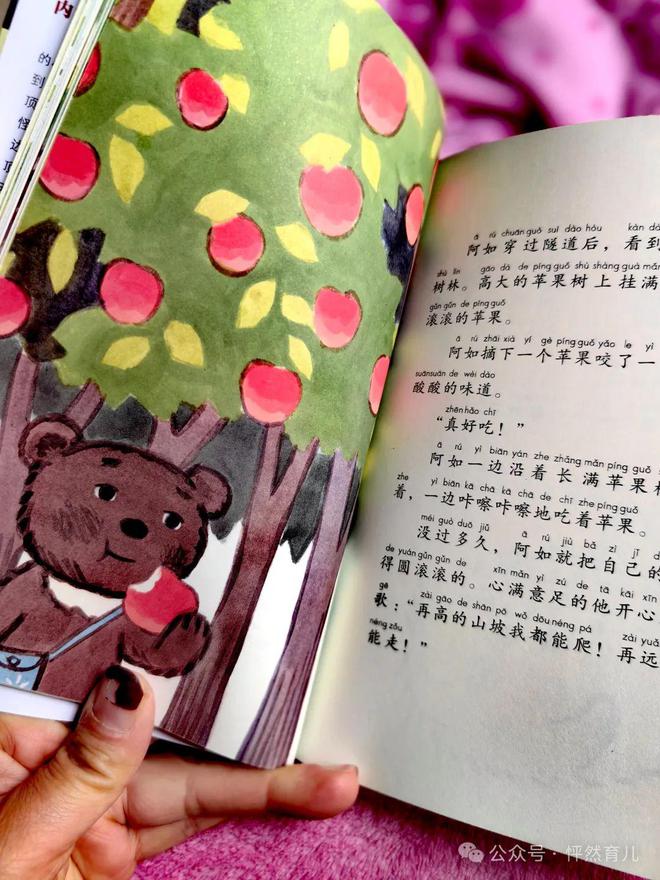 内
的
到
顶
怪
ā rú chuān guò suì dào hòu kàn dà
阿如穿过隧道后，看到
shù lín gāo dà de píng guǒ shù shàng guà mǎn
树林。高大的苹果树上挂满
gǔn gǔn de píng guǒ
滚滚的苹果。
ā rú zhāi xià yí gè píng guǒ yǎo le yì
阿如摘下一个苹果咬了一
suān suān de wèi dào
酸酸的味道。
zhēn hǎo chī
“真好吃！”
ā rú yì biān yán zhe zhǎng mǎn píng guǒ
阿如一边沿着长满苹果
zhe yì biān kā chā kā chā de chī zhe píng guǒ
着，一边咔嚓咔嚓地吃着苹果。
méi guò duō jiǔ ā rú jiù bǎ zì jǐ d
没过多久，阿如就把自己的
de yuán gǔn gǔn de xīn mǎn yì zú de tā kāi xīn
得圆滚滚的。心满意足的他开心
gē zài gāo de shān pō wǒ dōu néng pá zài yuǎ
歌：“再高的山坡我都能爬！再远
néng zǒu
能走！”
公众号·怦然育儿